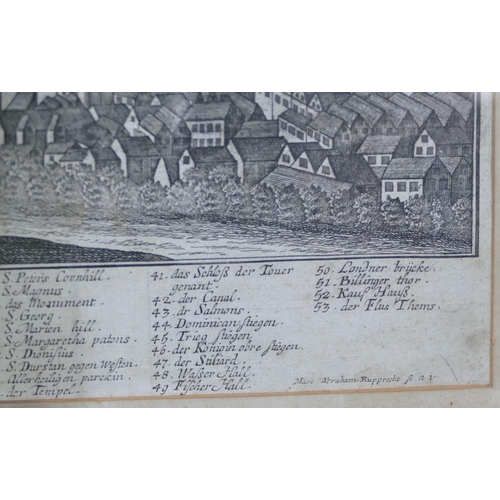 S. Peters Cornhill.
S. Magnus.
das Monument.
S. Georg.
S. Marden hill.
S. Margaretha patons.
S. Dionisius
S. Durstan gegen Westen.
Allerheiligen parckin.
der Tempel.
41. das Schloß der Touer
genant.
42. der Canal.
43. dr Salmons.
44. Dominican stiegen.
45. Trieg stiegen.
46. der Konigin obre stigen.
47. der Stiliard.
48. Wasser Hall.
49 Fischer Hall.
50. Londner brücke.
51. Billinger thor.
52. Kauf Hauß.
53. der Flus Thems.
Marc. Abraham Rupprecht